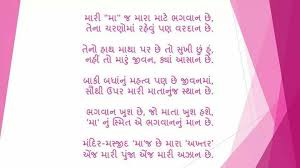 મારી "મા" જ મારા માટે ભગવાન છે,
તેના ચરણોમાં રહેવું પણ વરદાન છે.
તેનો હાથ માથા પર છે તો સુખી છું હું,
નહીં તો મારું જીવન, ક્યાં આસાન છે.
બાકી બધાંનું મહત્વ પણ છે જીવનમાં,
સૌથી ઉપર મારી માતાનુંજ સ્થાન છે.
ભગવાન ખુશ છે, જો માતા ખુશ હશે,
'મા' નું સ્મિત એ ભગવાનનું માન છે.
મંદિર-મસ્જિદ 'મા'જ છે મારા 'અખ્તર'
એંજ મારી પુંજા એંજ મારી અઝાન છે.